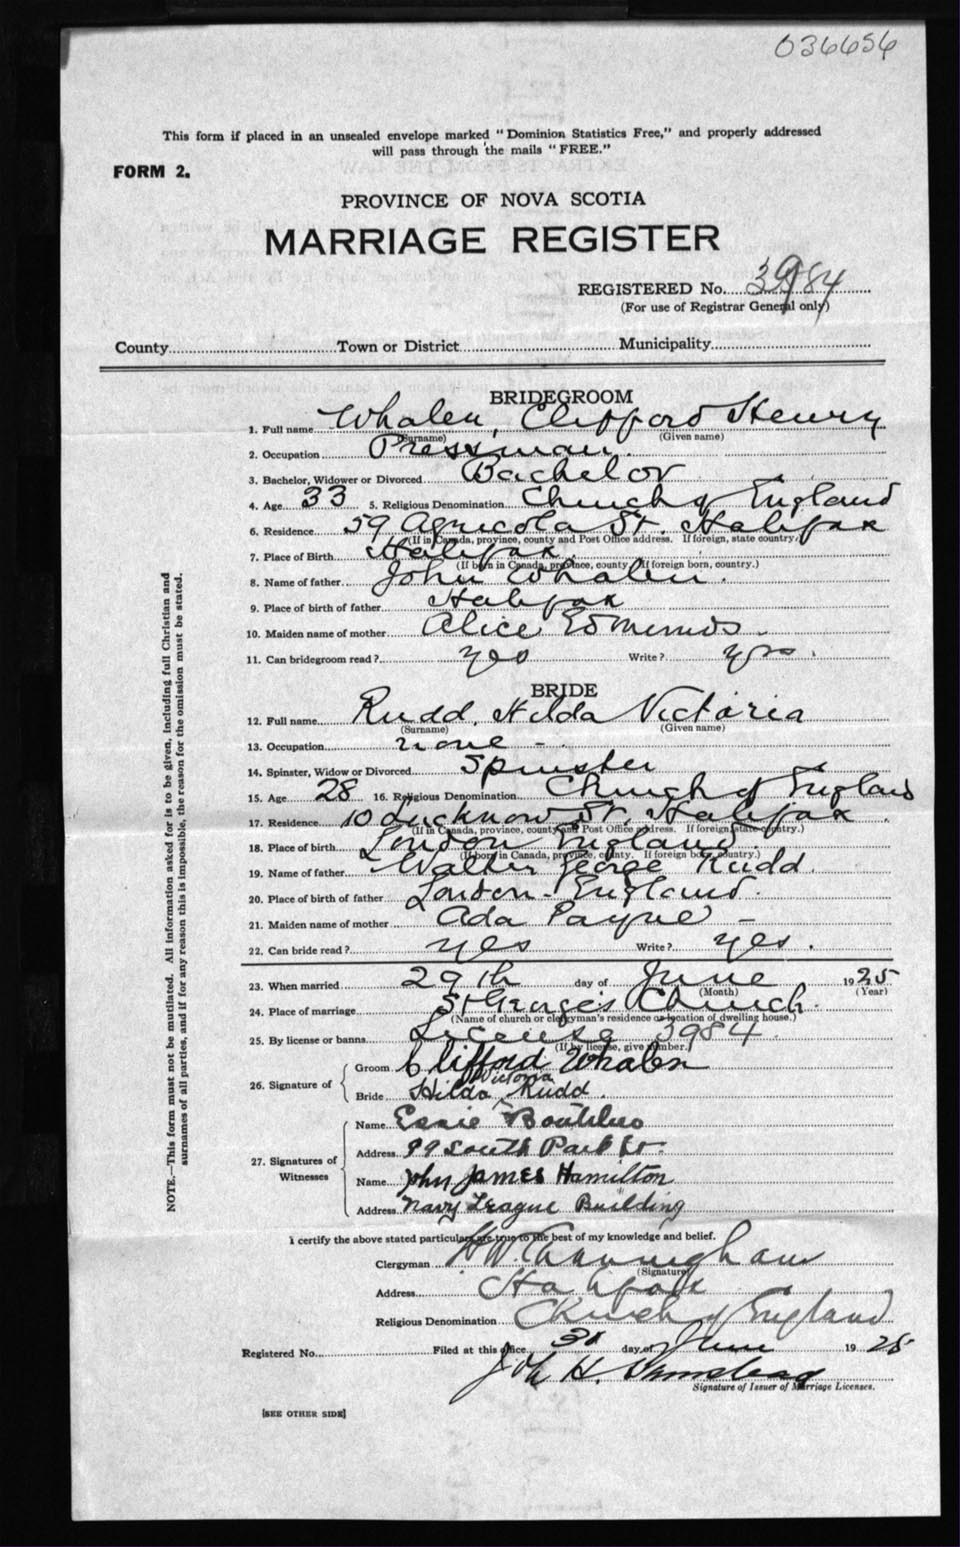 036656
This form if placed in an unsealed envelope marked "Dominion Statistics Free," and properly addressed
will pass through the mails "FREE."
FORM 2.
PROVINCE OF NOVA SCOTIA
MARRIAGE REGISTER
REGISTERED No. 3984
(For use of Registrar General only)
County Town or District Municipality
BRIDEGROOM
1. Full name Whalen, Clifford Henry
(Surname) (Given name)
2. Occupation Pressman.
3. Bachelor, Widower or Divorced Bachelor
4. Age 33 5. Religious Denomination Church of England
6. Residence 59 Agricola St. Halifax
(If in Canada, province, county and Post Office address. If foreign, state country.)
7. Place of Birth Halifax.
(If born in Canada, province, county. If foreign born, country.)
8. Name of father John Whalen.
9. Place of birth of father Halifax
10. Maiden name of mother Alice Edmunds.
11. Can bridegroom read? yes Write? yes.
BRIDE
12. Full name Rudd, Hilda Victoria
(Surname) (Given name)
13. Occupation none -
14. Spinster, Widow or Divorced Spinster
15. Age 28 16. Religious Denomination Church of England
17. Residence 10 Lucknow St. Halifax.
(If in Canada, province, county and Post Office address. If foreign, state country.)
18. Place of birth London England.
(If born in Canada, province, county. If foreign born, country.)
19. Name of father Walter George Rudd.
20. Place of birth of father London - England.
21. Maiden name of mother Ada Payne -
22. Can bride read? yes Write? yes.
23. When married 29th day of June 1925
(Month) (Year)
24. Place of marriage St George's Church.
(Name of church or clergyman's residence or location of dwelling house.)
25. By license or banns License 3984
(If by license, give number.)
26. Signature of
Groom Clifford Whalen
Bride Hilda Victoria Rudd.
27. Signatures of Witnesses
Name Essie Boutilier
Address 99 South Park St.
Name John James Hamilton
Address Navy League Building
I certify the above stated particulars are true to the best of my knowledge and belief.
Clergyman H W Cunningham
(Signature)
Address Halifax
Religious Denomination Church of England
Registered No. Filed at this office 30 day of June 1925
H.
Signature of Issuer of Marriage Licenses.
[SEE OTHER SIDE]
NOTE.—This form must not be mutilated. All information asked for is to be given, including full Christian and
surnames of all parties, and if for any reason this is impossible, the reason for the omission must be stated.